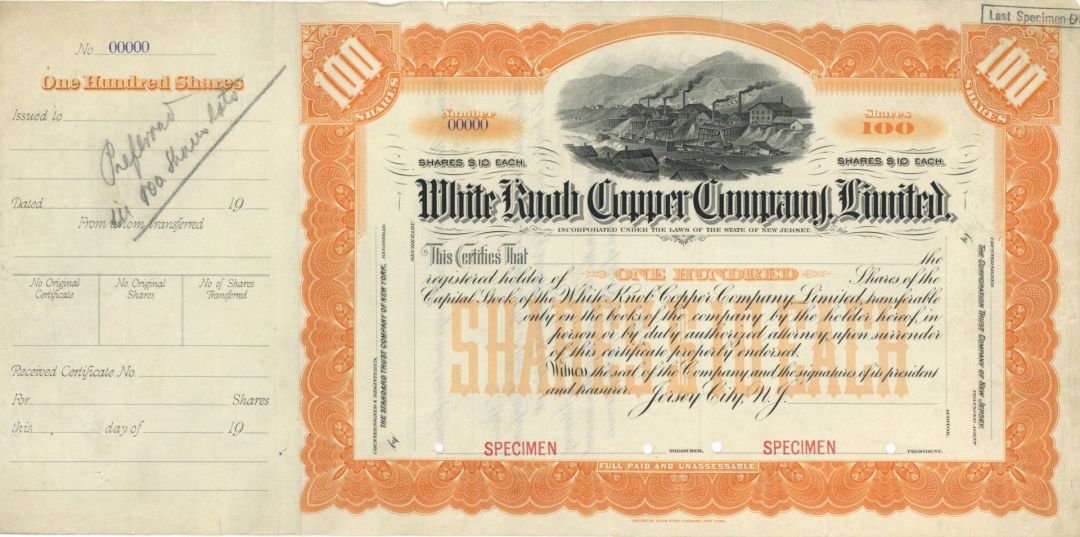 No 00000
One Hundred Shares
Issued to
Preferred
in 100 shares lots
Dated 19
From whom transferred
No Original Certificate
No Original Shares
No of Shares Transferred
Received Certificate No
For Shares
this day of 19
Last Specimen
100 SHARES
100 SHARES
Number
00000
Shares
100
SHARES $10 EACH.
SHARES $10 EACH.
White Knob Copper Company, Limited.
INCORPORATED UNDER THE LAWS OF THE STATE OF NEW JERSEY.
This Certifies That the
registered holder of ONE HUNDRED Shares of the
Capital Stock of the White Knob Copper Company, Limited, transferable
only on the books of the company by the holder hereof, in
person or by duly authorized attorney, upon surrender
of this certificate properly endorsed.
Witness the seal of the Company and the signatures of its president
and treasurer. Jersey City, N. J.
SHARES $10 EACH
COUNTERSIGNED & REGISTERED,
THE STANDARD TRUST COMPANY OF NEW YORK,
REGISTRAR.
by
SECRETARY.
COUNTERSIGNED
THE CORPORATION TRUST COMPANY OF NEW JERSEY,
TRANSFER AGENT
by
SPECIMEN TREASURER.
SPECIMEN PRESIDENT.
FULL PAID AND UNASSESSABLE